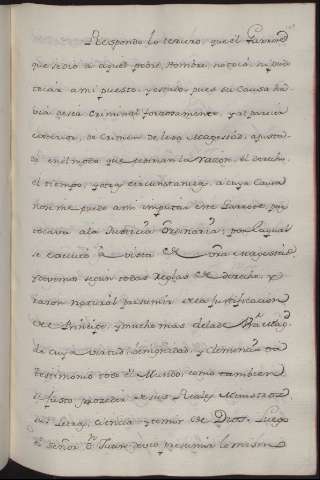 Respondo lo tercero, que el Garrote
que se dio a aquel pobre hombre, no toca, ni pudo
tocar a mi puesto, y estado, pues su Causa ha-
via de ser Criminal forzosamente, y al parecer
de Crimen de lesa Magestad,
en el modo que la Razon, el derecho,
el tiempo, y otras circunstancias, a cuya Causa
no se me puede a mi imputar este Garrote, pues
tocava a la Justicia Ordinaria; por la qual
se executò à vista de vra Magestad,
y devemos segun todas Reglas de derecho, y
razon natural presumir de la justificacion
del Principe, y mucho mas de la de Vra Magd.
de cuya virtud, benignidad, y clemencia dà
testimonio todo el Mundo, como tambien
el justo proceder de sus Reales Ministros
sus Letras, ciencia, y temor de Dios. Luego
el Señor Dn. Juan deviò presumir lo mesmo